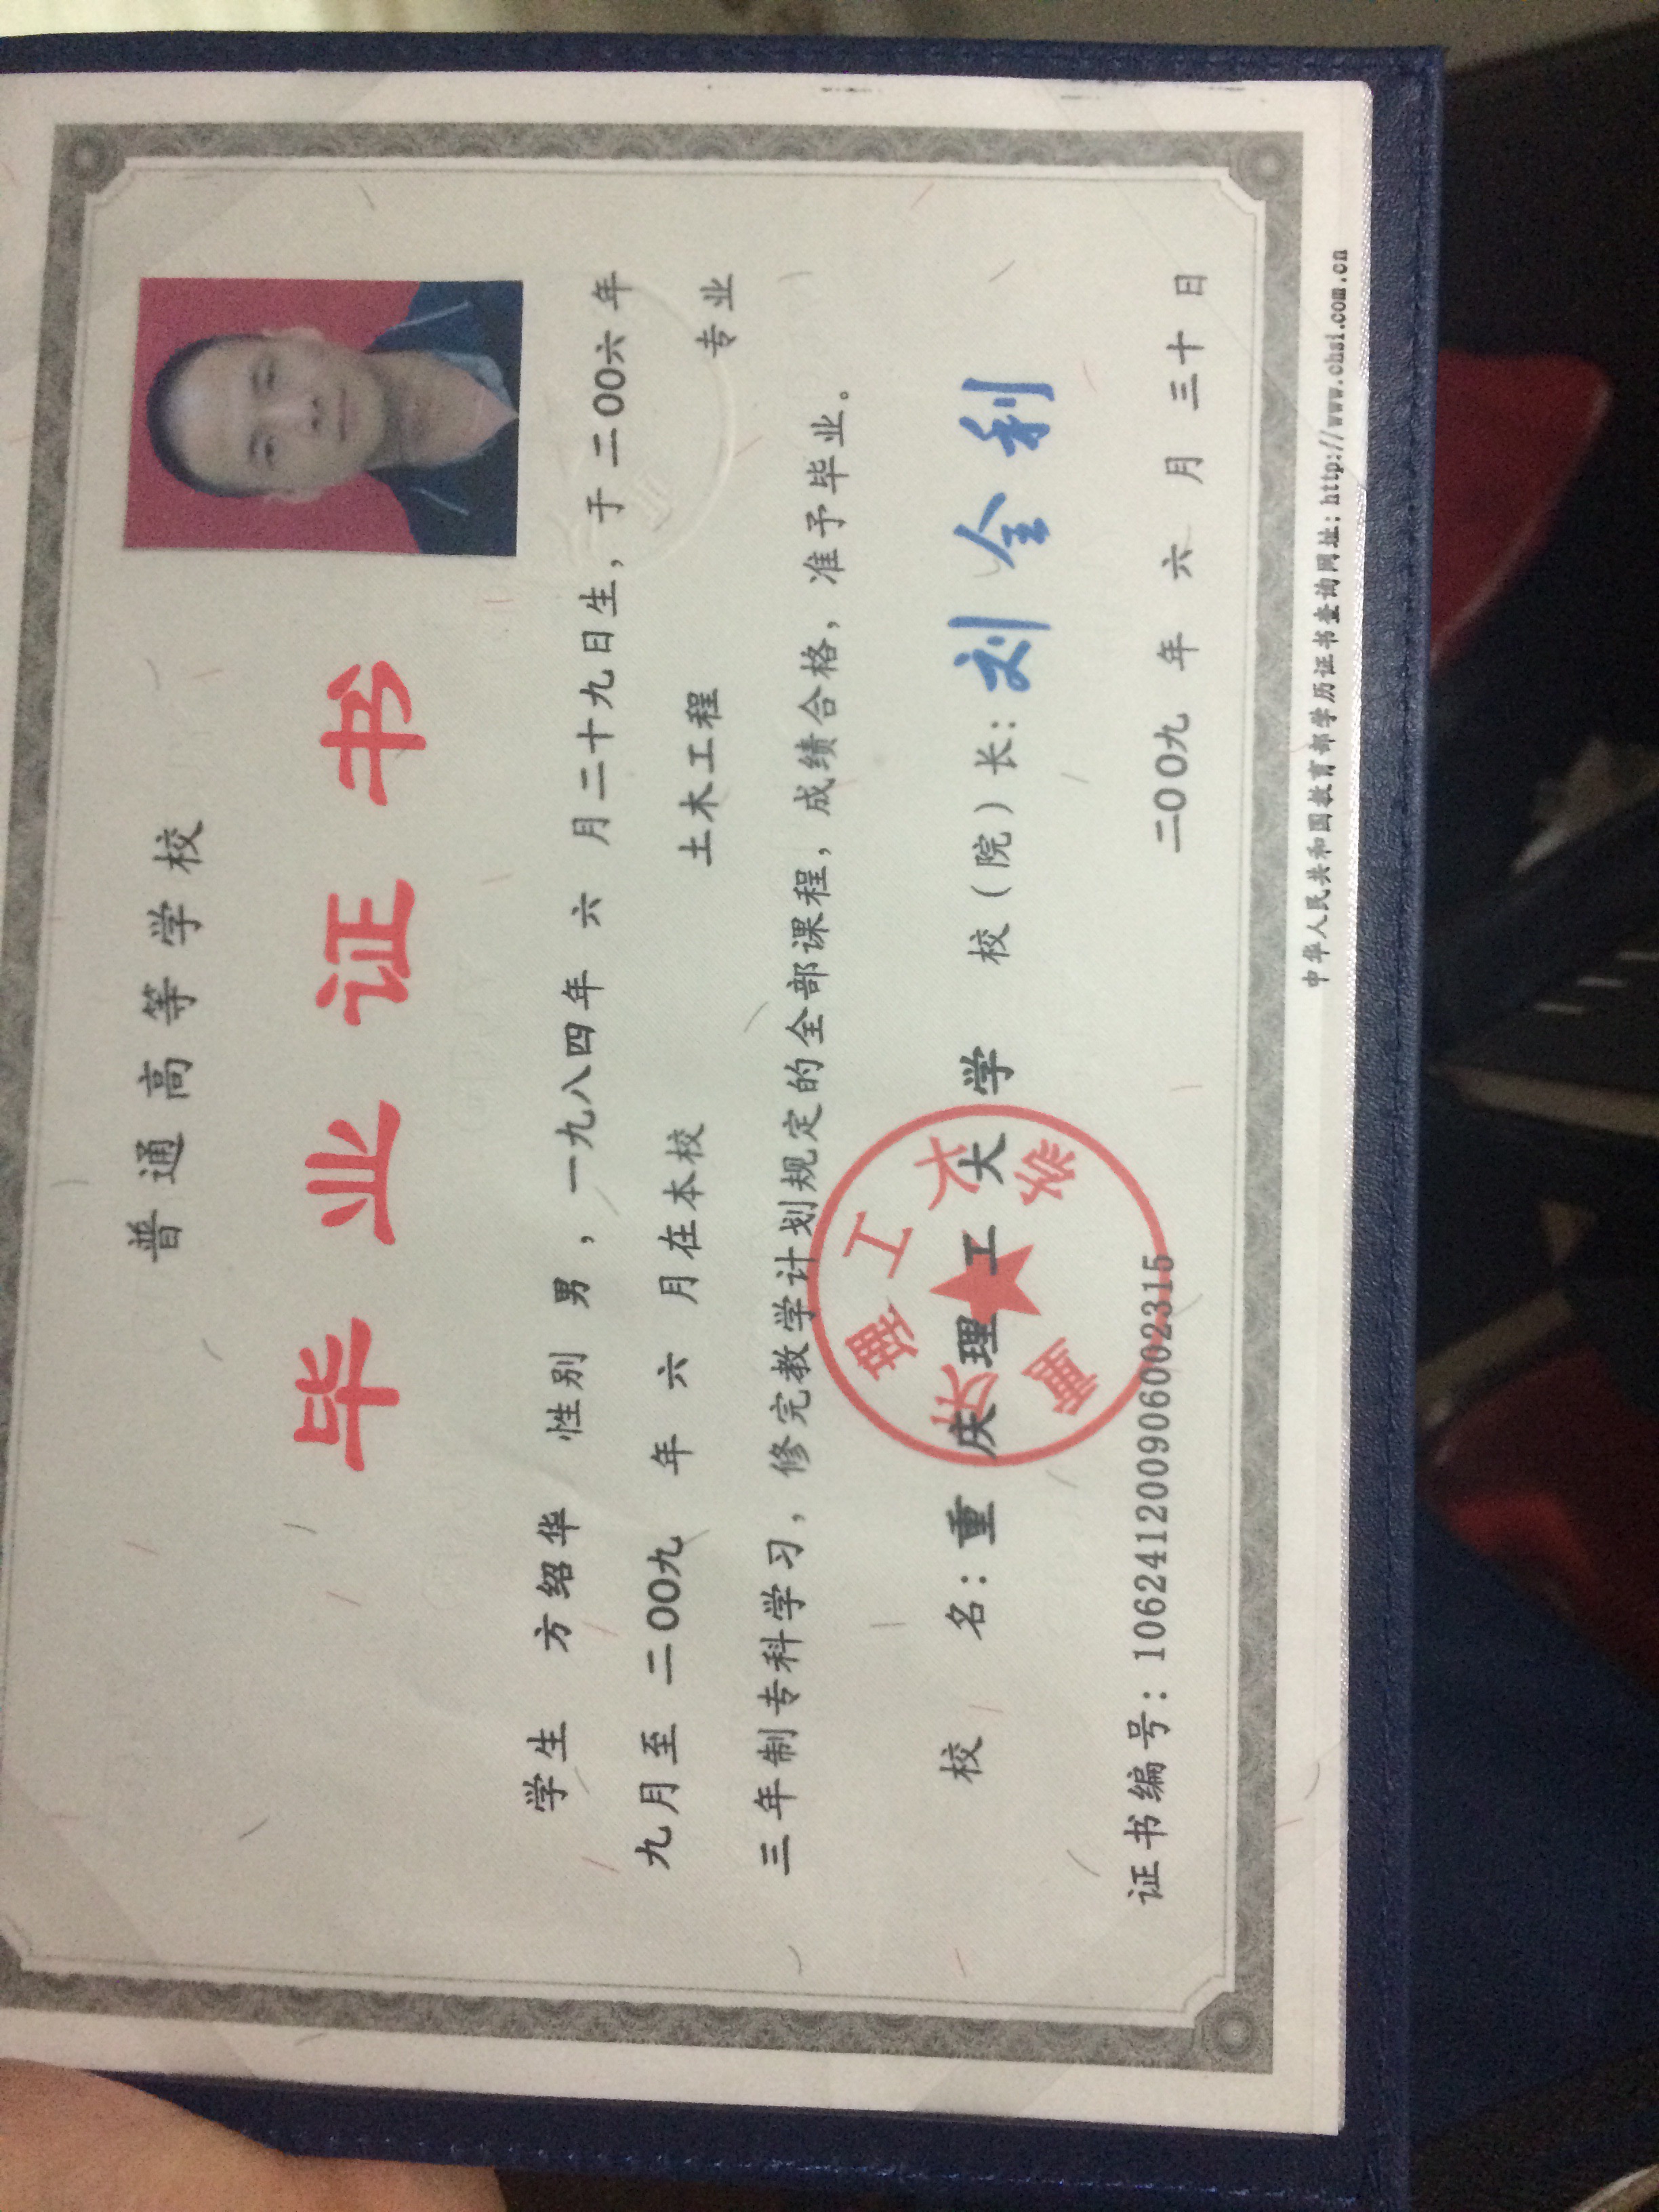 普通高等学校
毕业证书
学生 方绍华 性别 男，一九八四年 六 月二十九日生，于 二00六 年
九月至 二00九 年 六 月在本校 土木工程 专业
三年制专科学习，修完教学计划规定的全部课程，成绩合格，准予毕业。
校 名：重庆理工大学 校（院）长：刘全利
证书编号：106241200906002315 二00九 年 六 月 三十 日
中华人民共和国教育部学历证书查询网址：http://www.chsi.com.cn